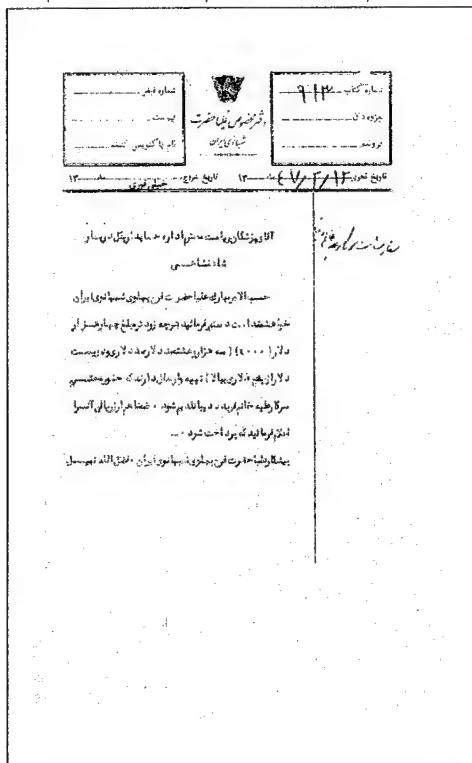 شماره کتاب ۹۱۳
جزوه‌دان
پرونده
دفتر مخصوص علیاحضرت
شهبانوی ایران
شماره قبلی
پیوست
نام پاکنویس کننده
تاریخ تحریر ۴۷/۲/۱۲ ماه ۱۳ تاریخ خروج ماه ۱۳
خیلی فوری
آقای پزشکان ریاست محترم اداره حسابداری کل دربار
شاهنشاهی
حسب‌الامر مبارک علیاحضرت فرح پهلوی شهبانوی ایران
خواهشمند است دستور فرمائید هرچه زودتر مبلغ چهار هزار
دلار (۴۰۰۰) (سه هزار و هشتصد دلار صد دلاری و دویست
دلار از پنج دلاری ببالا) تهیه و ارسال دارند که حضور محترم
سرکار علیه خانم فریده دیبا تقدیم شود . ضمنا هم‌ارز ریالی آنرا
اعلام فرمائید که پرداخت شود . ــ
پیشکار علیاحضرت فرح پهلوی شهبانوی ایران . فضل‌الله نبیل